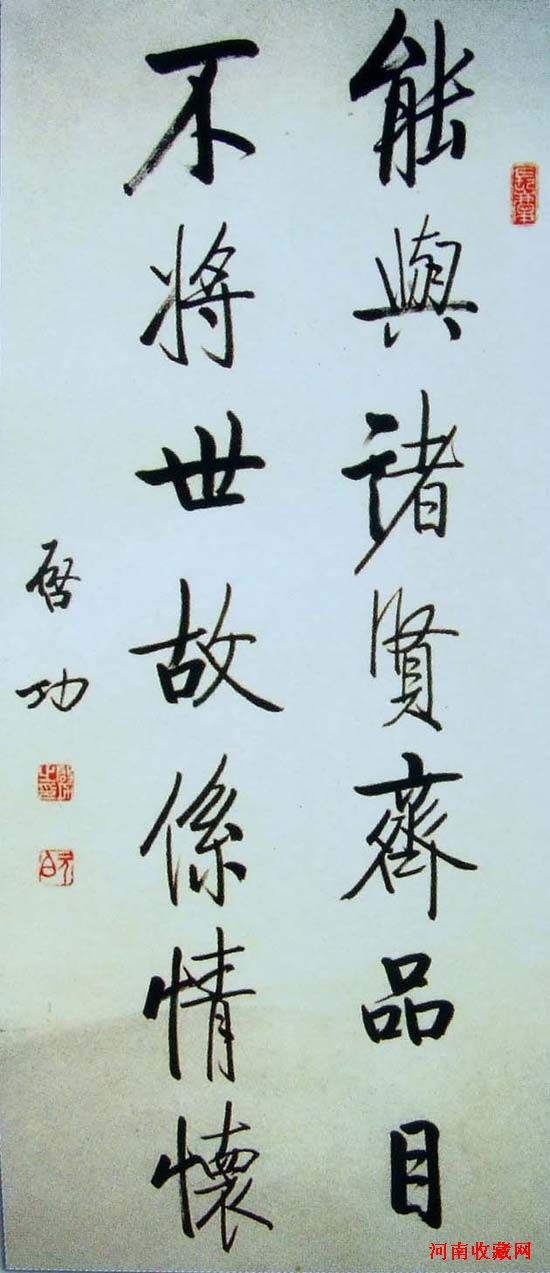 能與諸賢齊品目
不將世故係情懷
啓功
河南收藏网